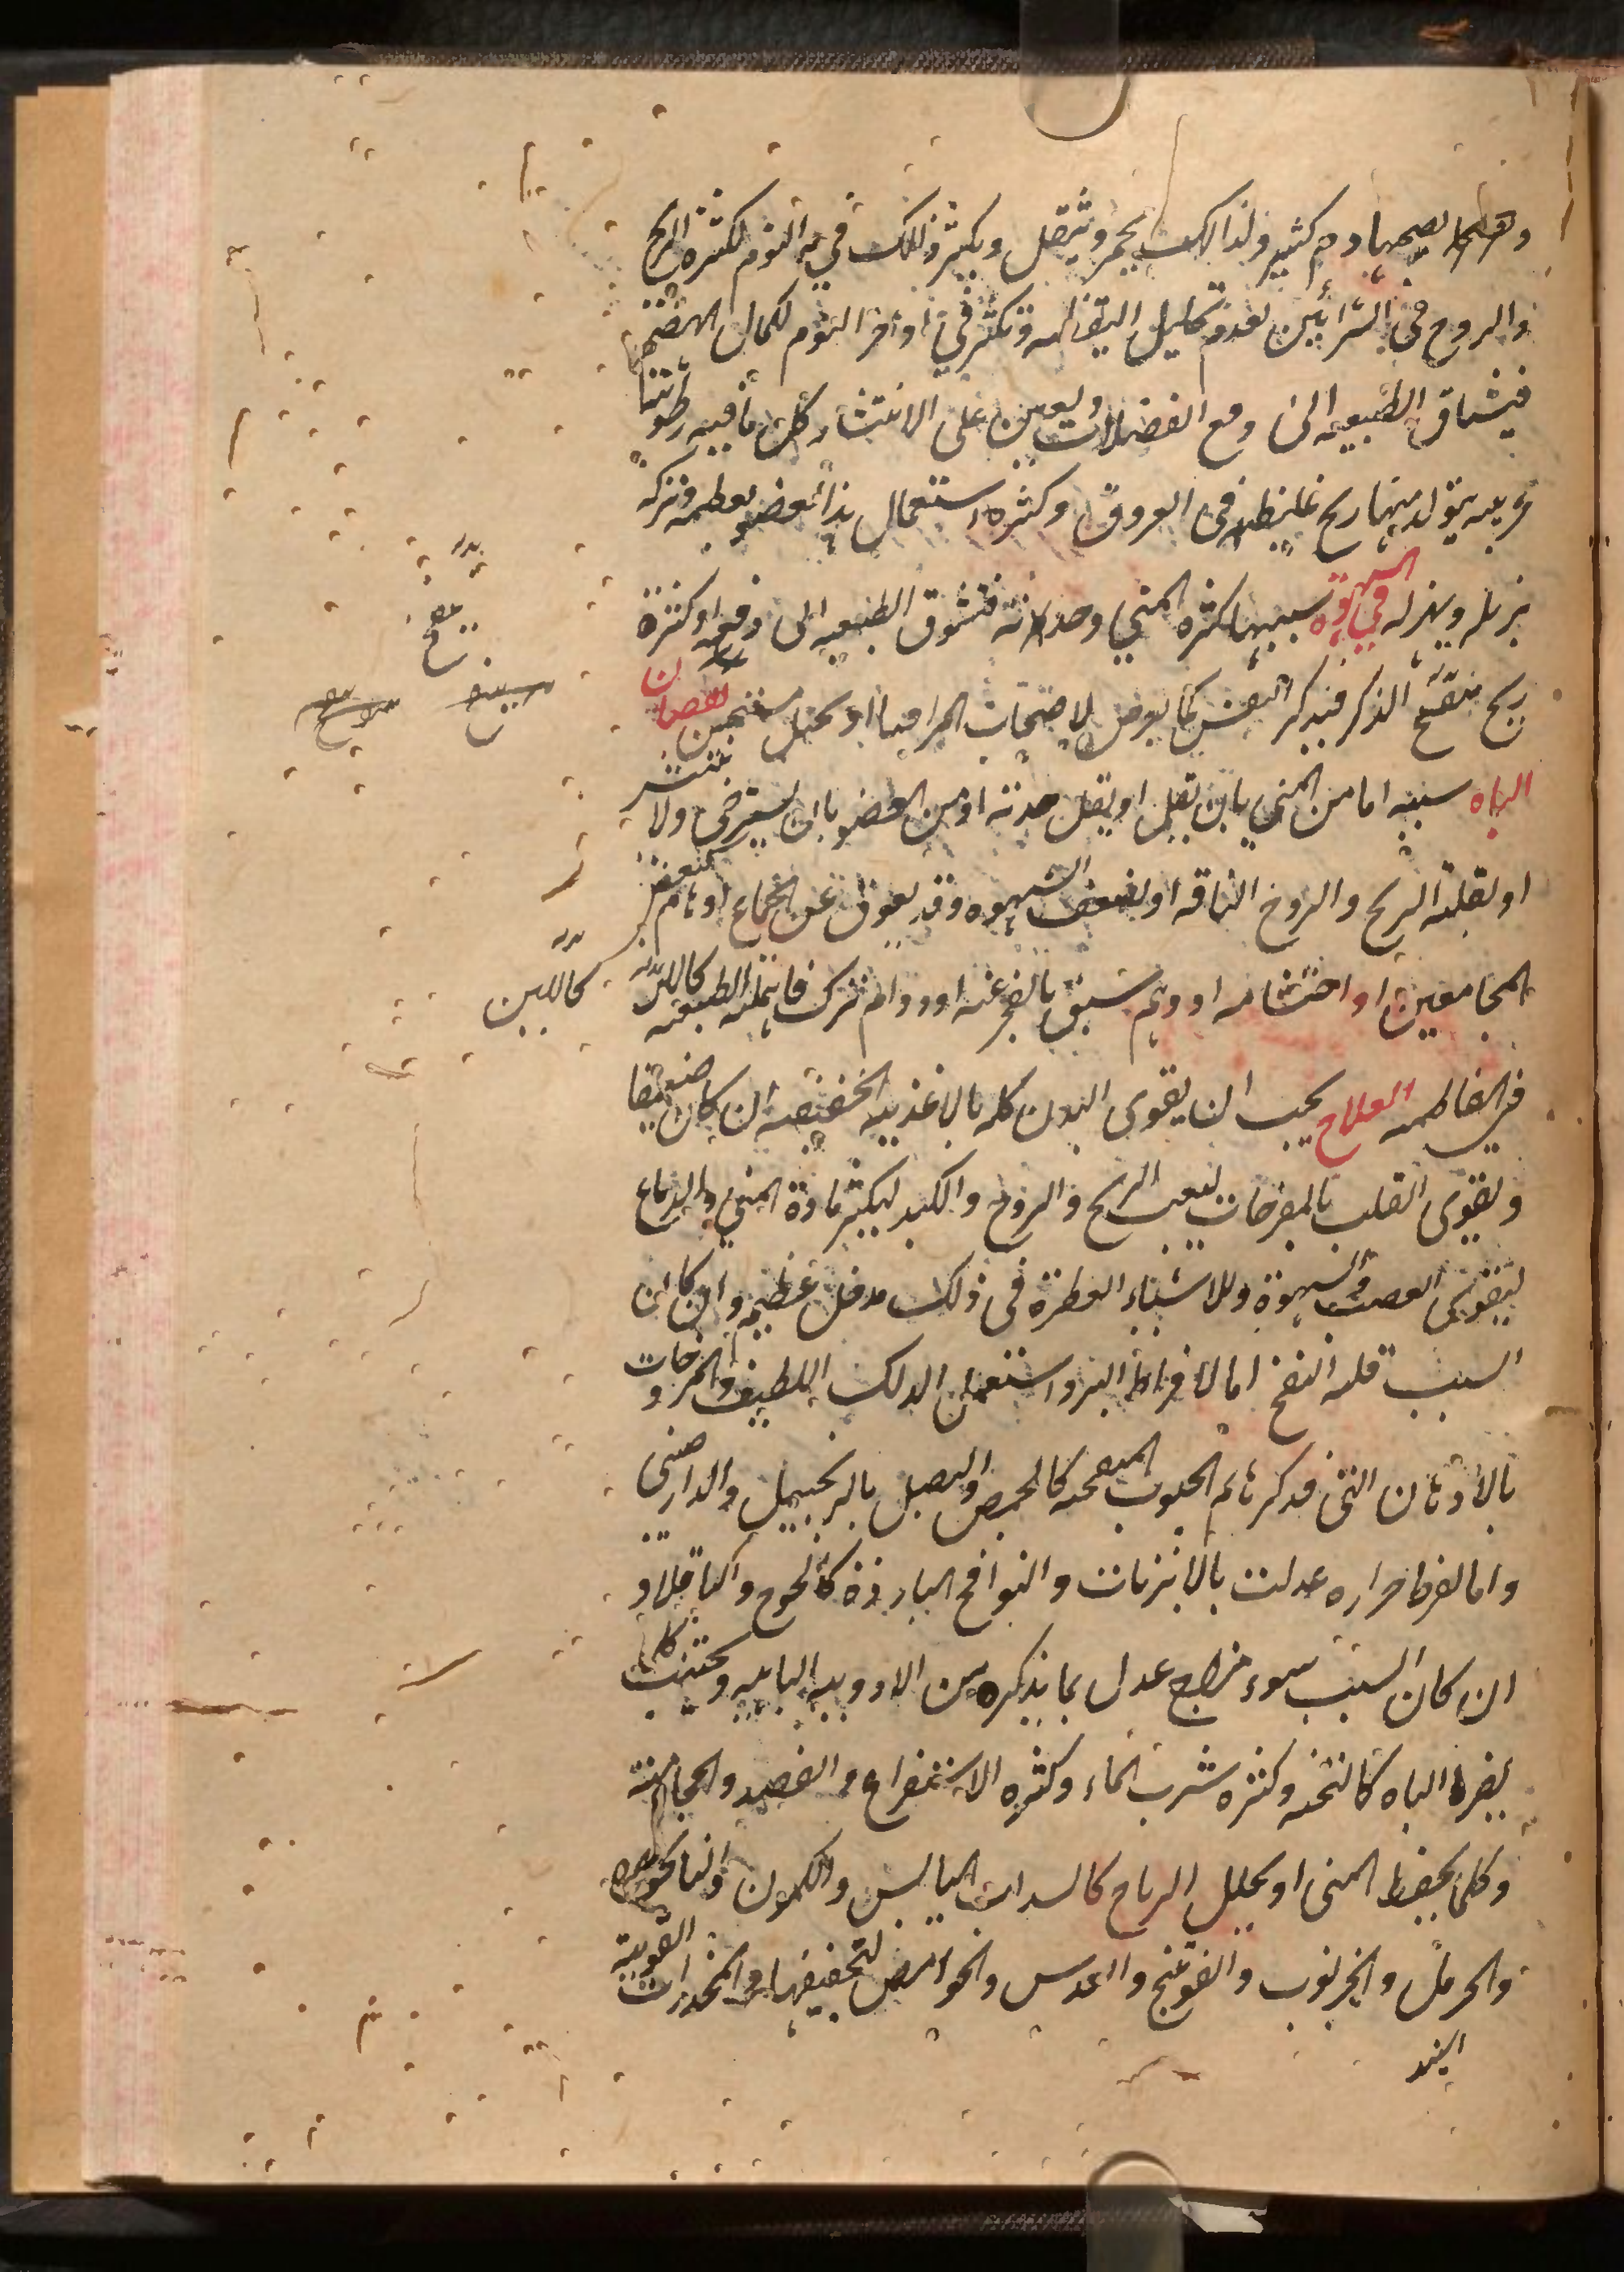 وهما يصحبها دم كثير ولذالك يحمر ويثقل ويكثر ذلك في النوم لكثرة الريح
والروح في الشرائين لعدم تحليل اليقظه وتكثر في اواخر النوم لكمال الهضم
فيشتاق الطبيعه الى دفع الفضلات ويعين على الانتشار كل ما فيه رطوبته
غريبه يتولد منها ريح غليظه في العروق وكثره استعمال هذا العضو يعظمه وتركه
يزبله ويهزله في الشهوة سببها كثره المني وحدته فتشوق الطبيعه الى دفعه او كثرة
ريح منفخ الذكر فيذكر النفس كما يعرض لاصحاب المراقيا او تخيل مستحسن نقصان
الباه سببه اما من المني بان يقل او يقل حدته او من العضو بان يسترخى ولا ينتشر
او لقلة الريح والروح الناقه او لضعف الشهوه وقد يعوق عن الجماع اوهام كبغض
المجامعين او احتشامه او وهم سبق بالعجز عنه او دوام ترك فانهله الطبيعه كاللبن
كاللبن
في الفاطمه العلاج يجب ان يقوى البدن كله بالاغذيه الخفيفه ان كان ضعيفا
ويقوى القلب بالمفرحات لينبعث الريح والروح والكبد ليكثر مادة المني والدماغ
ليقوى العصب والشهوة وللاشياء العطرة في ذلك مدخل عظيم وان كان
السبب قله النفخ اما لافراط البرد استعمل الدلك اللطيف والمروخات
بالادهان التي نذكرها ثم الحبوب المنفخه كالحمص والبصل بالزنجبيل والدارصيني
واما لفرط حراره عدلت بالابزنات والنوافخ البارده كالخوخ والباقلا و
ان كان السبب سوء مزاج عدل بما نذكره من الادويه الباهيه ويجتنب كلما
يضر الباه كالتخمه وكثره شرب الماء وكثره الاستفراغ والفصد والحجامة
وكلما يجفف المني او يحلل الرياح كالسداب اليابس والكمون والنانخواه
والحرمل والخرنوب والفوتنج والعدس والحوامض لتجفيفها والمخدرات القوية
البند